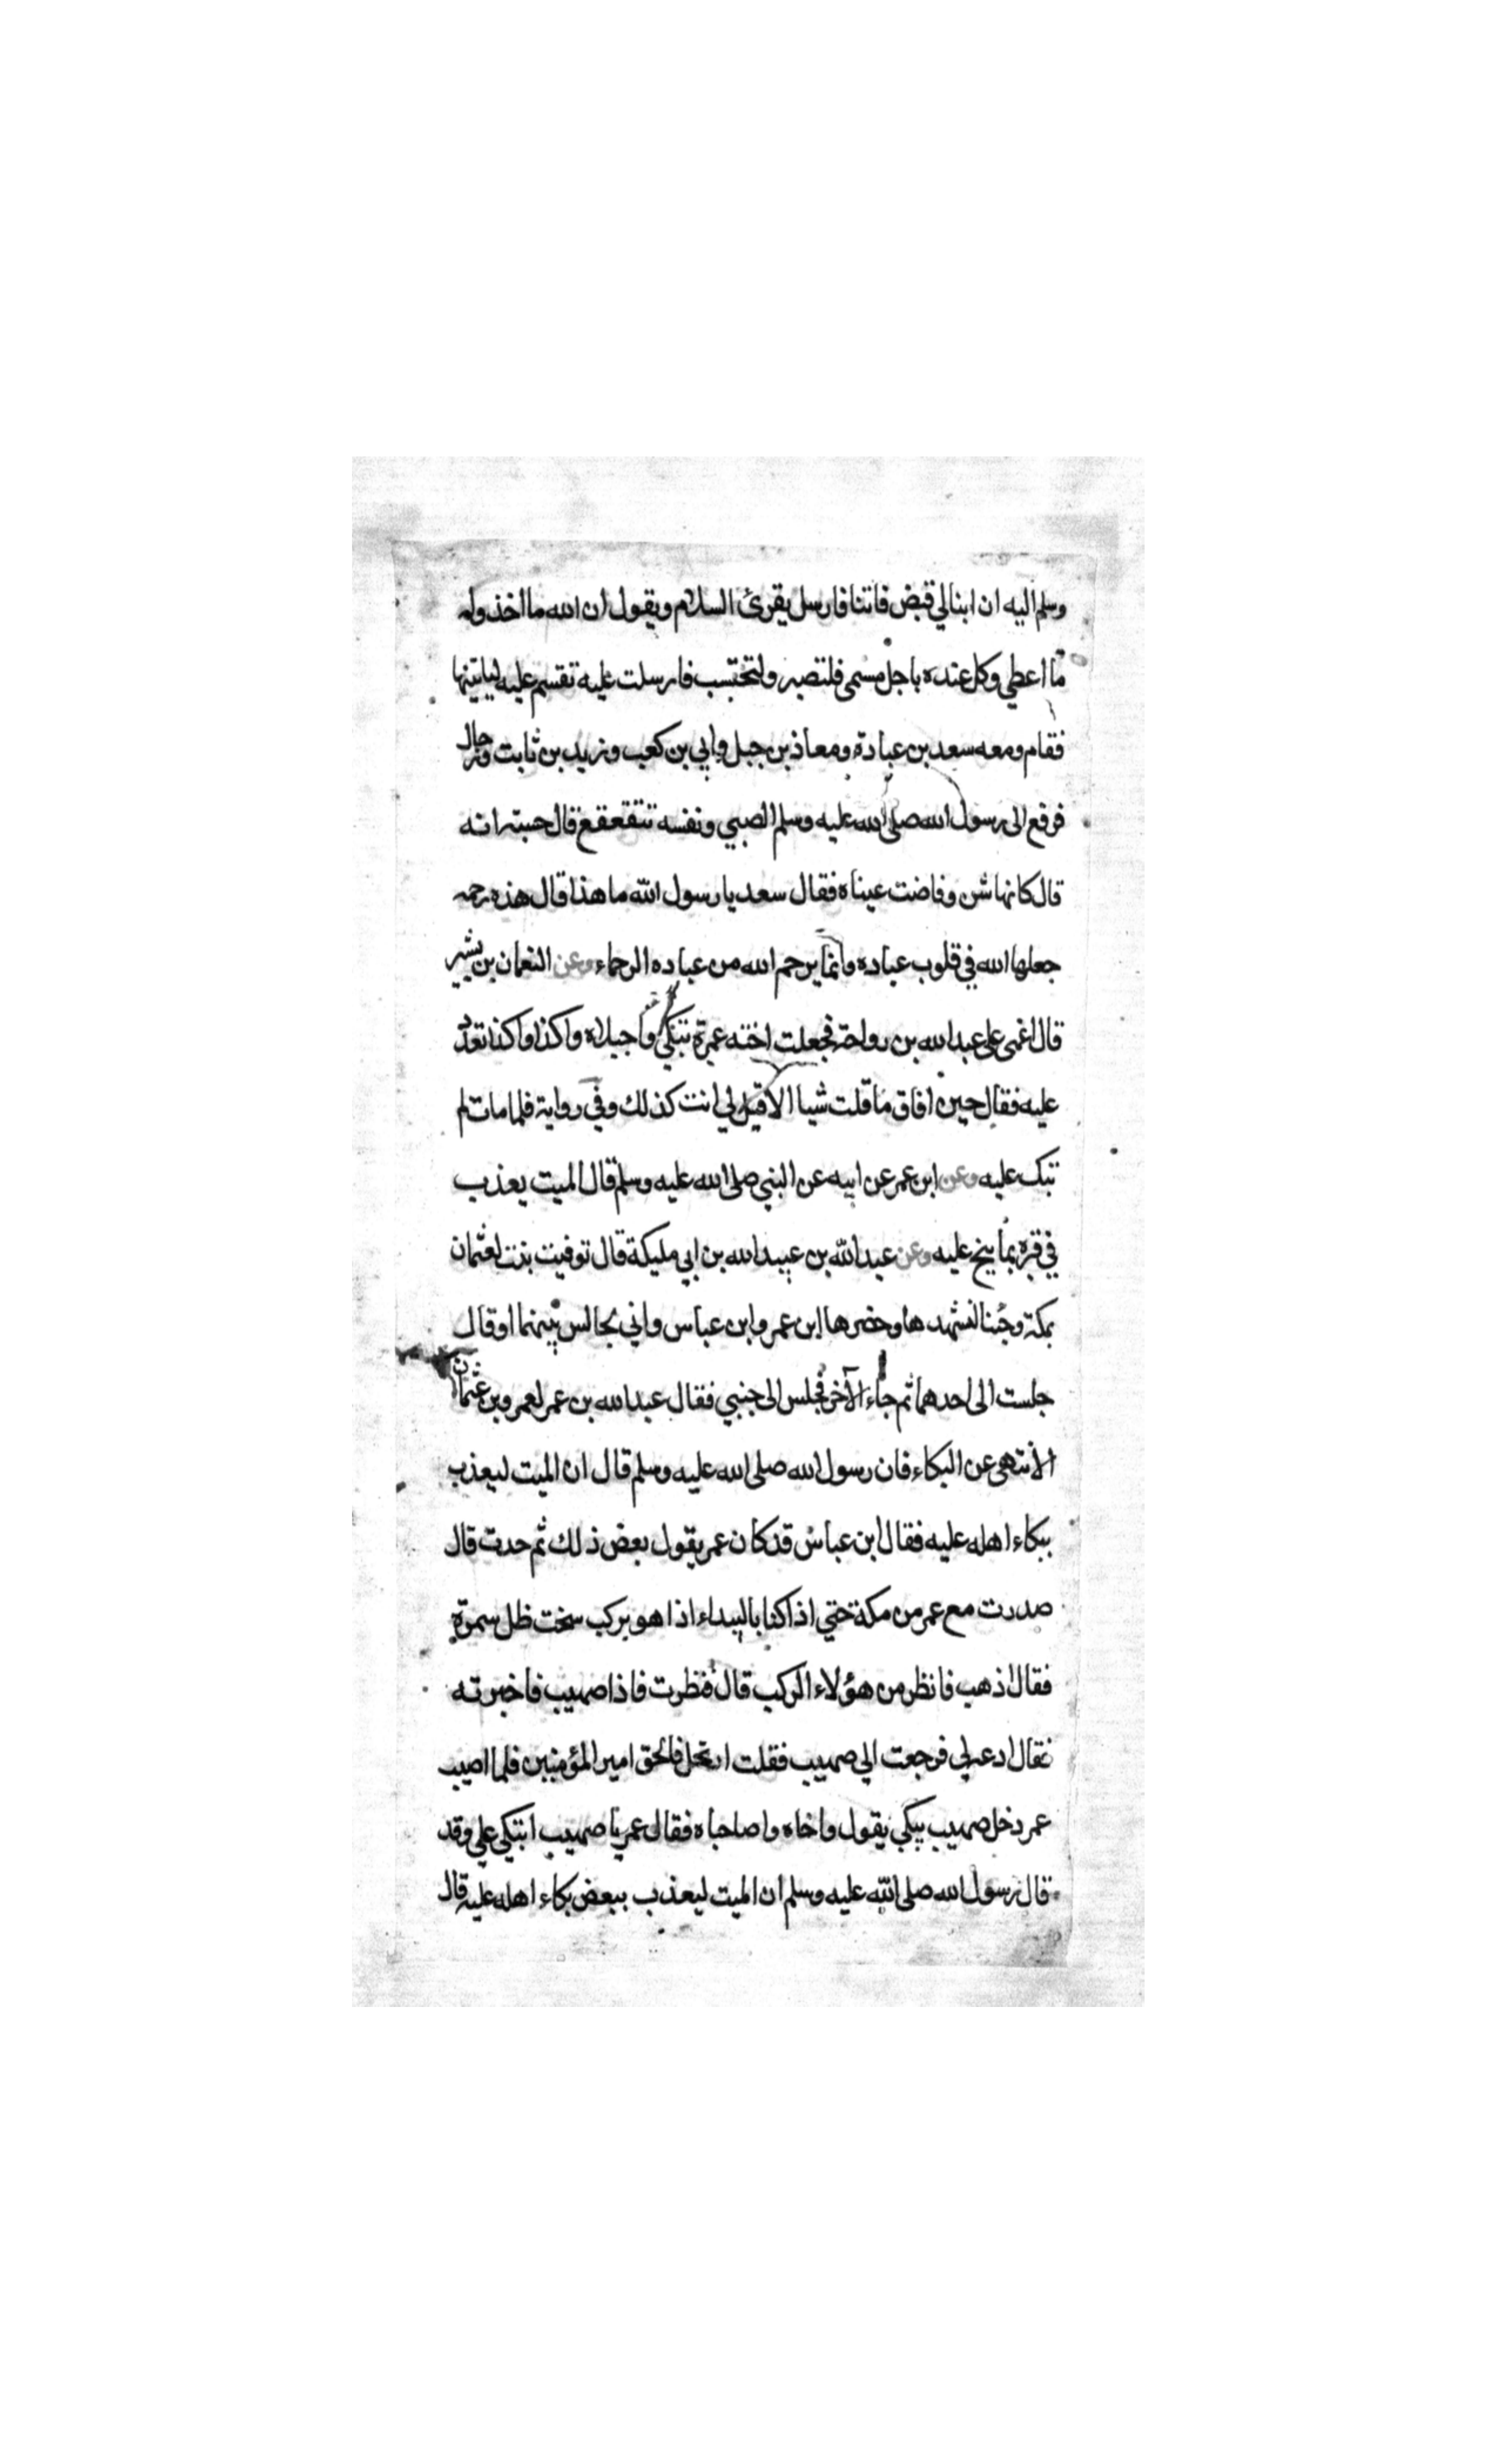 وسلم اليه ان ابنا لي قبض فاتنا فارسل يقرئ السلام ويقول ان الله ما اخذ وله
ما اعطي وكل عنده باجل مسمى فلتصبر ولتحتسب فارسلت عليه تقسم عليه لياتينها
فقام ومعه سعد بن عبادة ومعاذ بن جبل وابي بن كعب وزيد بن ثابت ورجال
فرفع الى رسول الله صلى الله عليه وسلم الصبي ونفسه تتقعقع قال حسبته انه
قال كانها شن وفاضت عيناه فقال سعد يا رسول الله ما هذا قال هذه رحمه
جعلها الله في قلوب عباده وانما يرحم الله من عباده الرحماء وعن النعمان بن بشير
قال اغمى على عبد الله بن رواحة فجعلت اخته عمرة تبكي واجبلاه واكذا واكذا تعدد
عليه فقال حين افاق ما قلت شيا الا قيل لي انت كذلك وفي رواية فلما مات لم
تبك عليه وعن ابن عمر عن ابيه عن النبي صلى الله عليه وسلم قال الميت يعذب
في قبره بما نيح عليه وعن عبد الله بن عبيد الله بن ابي مليكة قال توفيت بنت لعثمان
بمكة وجئنا لنشهدها وحضرها ابن عمر وابن عباس واني لجالس بينهما او قال
جلست الى احدهما ثم جاء الآخر فجلس الى جنبي فقال عبد الله بن عمر لعمرو بن عثمان
الا تنتهى عن البكاء فان رسول الله صلى الله عليه وسلم قال ان الميت ليعذب
ببكاء اهله عليه فقال ابن عباس قد كان عمر يقول بعض ذلك ثم حدث قال
صدرت مع عمر من مكة حتي اذا كنا بالبيداء اذا هو بركب تحت ظل سمرة
فقال اذهب فانظر من هؤلاء الركب قال فنظرت فاذا صهيب فاخبرته
فقال ادعه لي فرجعت الي صهيب فقلت ارتحل فالحق امير المؤمنين فلما اصيب
عمر دخل صهيب يبكي يقول واخاه واصاحباه فقال عمر يا صهيب اتبكي علي وقد
قال رسول الله صلى الله عليه وسلم ان الميت ليعذب ببعض بكاء اهله عليه قال